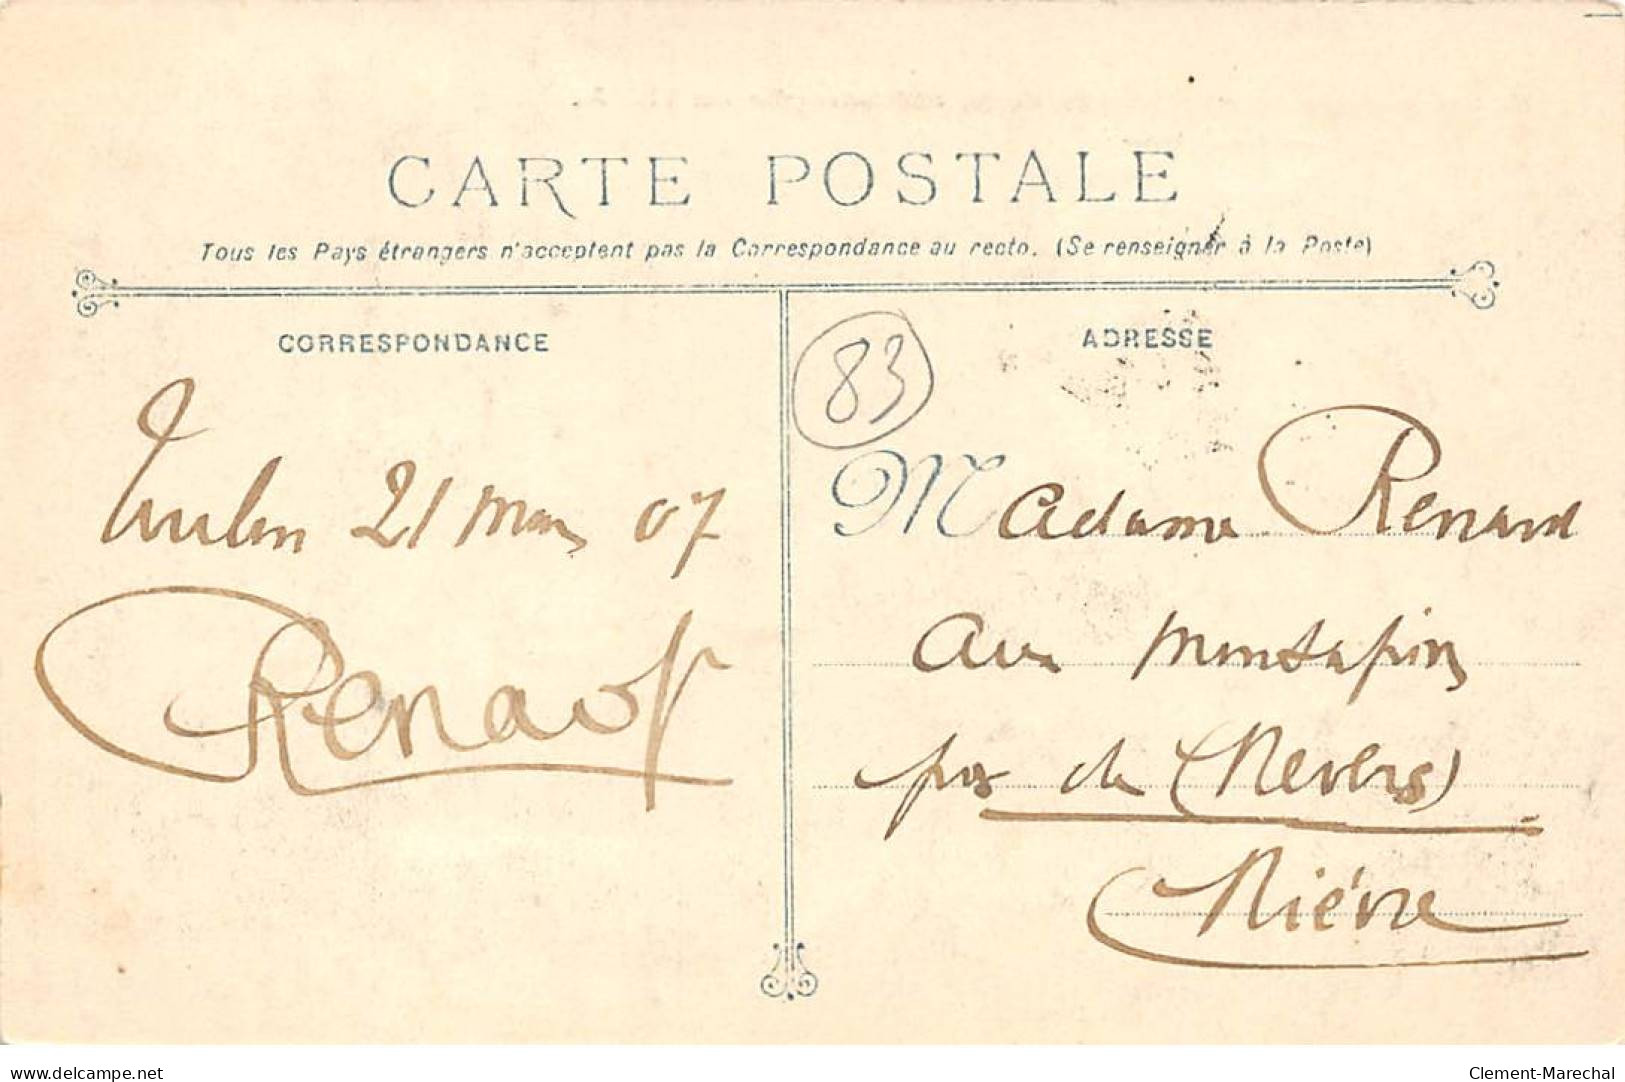 CARTE POSTALE
Tous les Pays étrangers n'acceptent pas la Correspondance au recto. (Se renseigner à la Poste)
CORRESPONDANCE
Toulon 21 Mars 07
Renard
ADRESSE
83
Madame Renard
aux Montapins
près de (Nevers)
Nièvre
www.delcampe.net
Clement-Marechal